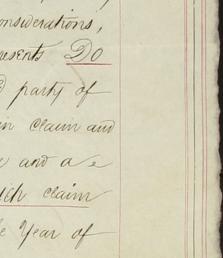 onsiderations,
resents Do
party of
in claim and
and a
ch claim
Year of